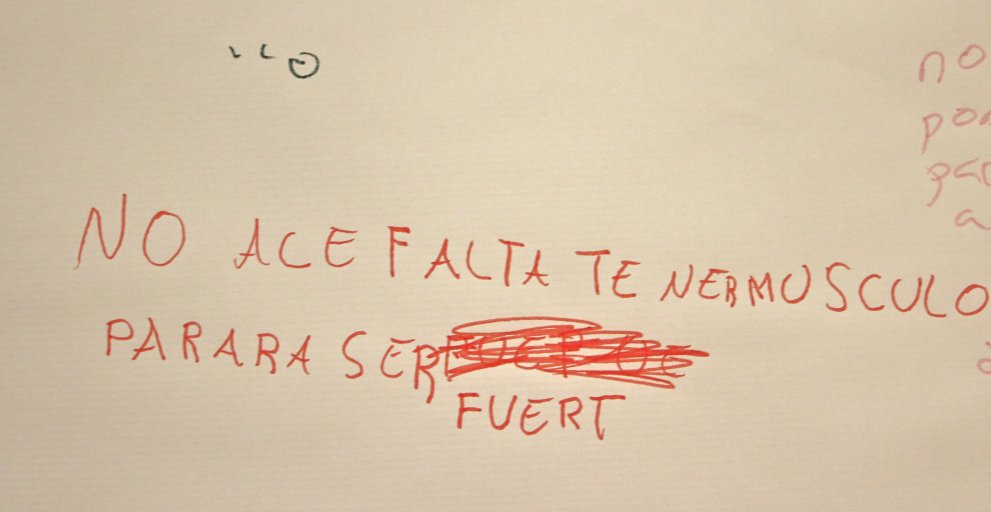 NO ACE FALTA TE NERMUSCULO
PARARA SER
FUERT
no
a